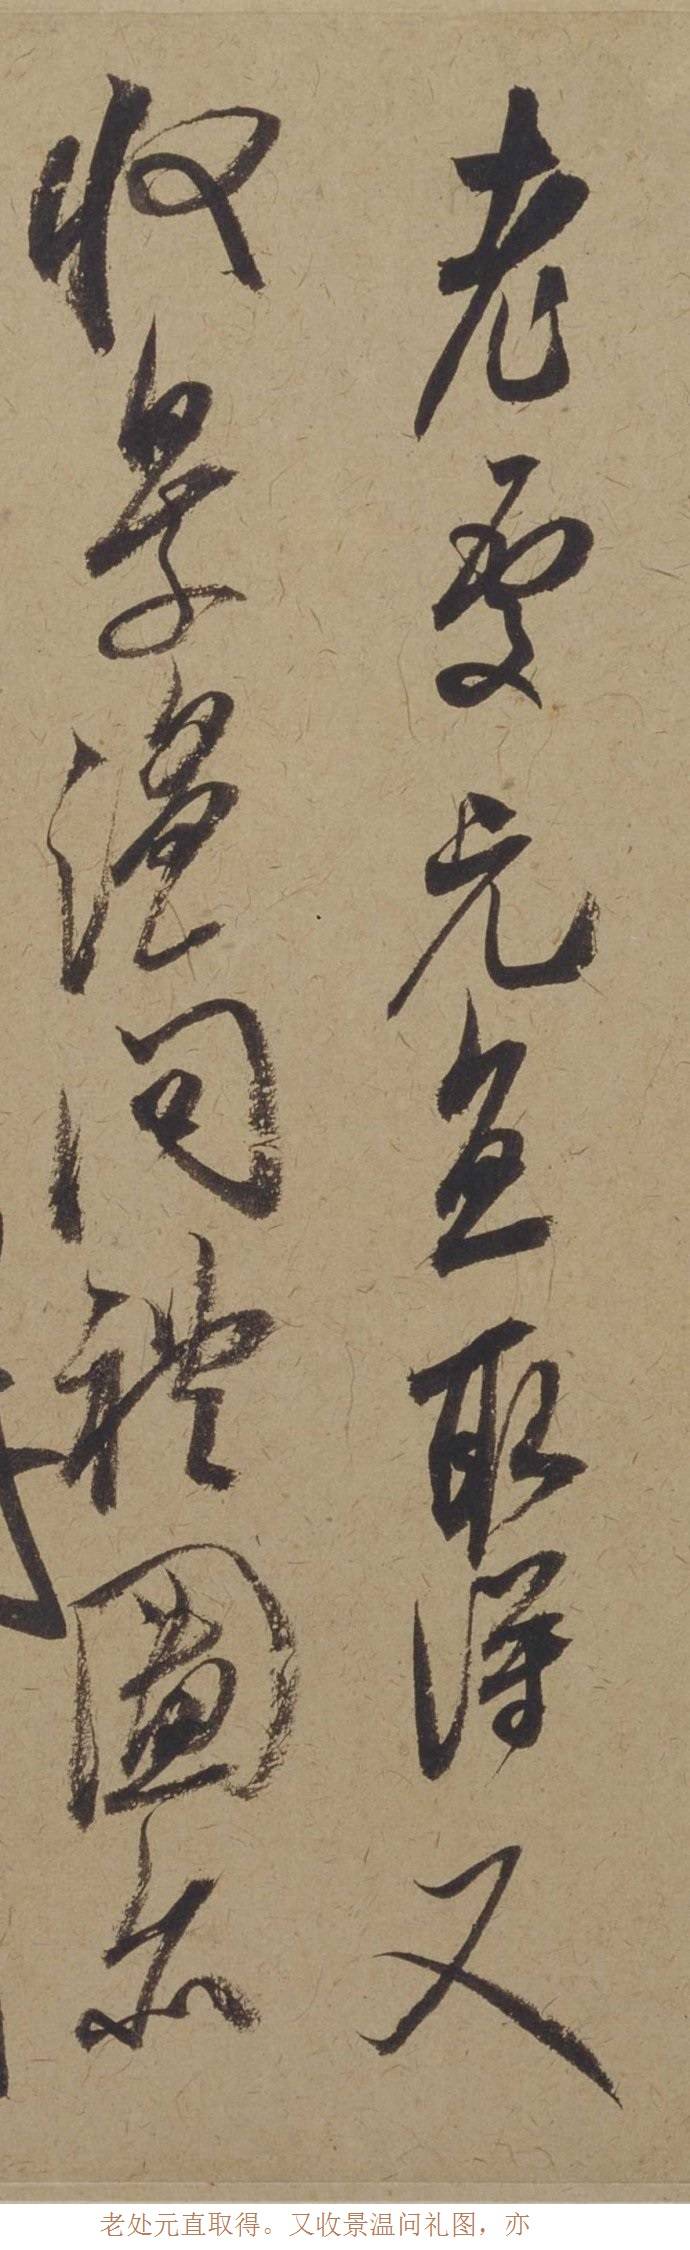 老處元直取得又
收景溫問禮圖亦
老处元直取得。又收景温问礼图，亦